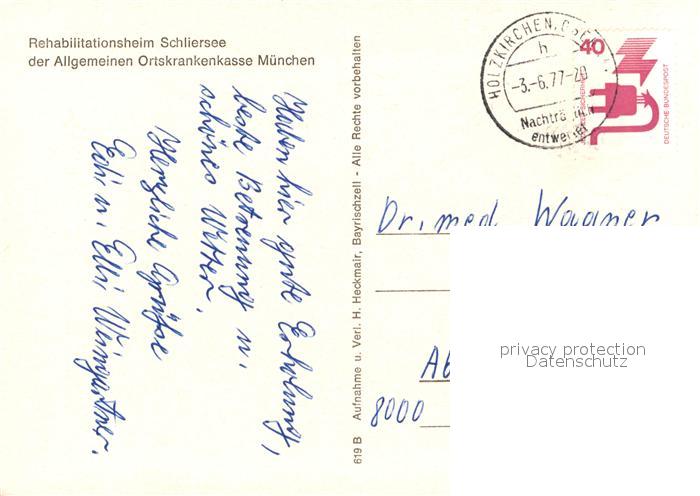 Rehabilitationsheim Schliersee
der Allgemeinen Ortskrankenkasse München
Haben hier gute Erholung,
beste Betreuung u.
schönes Wetter.
Herzliche Grüße
Edi u. Elli Weingartner.
619 B Aufnahme u. Verl. H. Heckmair, Bayrischzell - Alle Rechte vorbehalten
HOLZKIRCHEN, OB
h
-3.-6.77-20
Nachträglich
entwertet
40
DEUTSCHE BUNDESPOST
Dr. med. Wagner
8000
privacy protection
Datenschutz